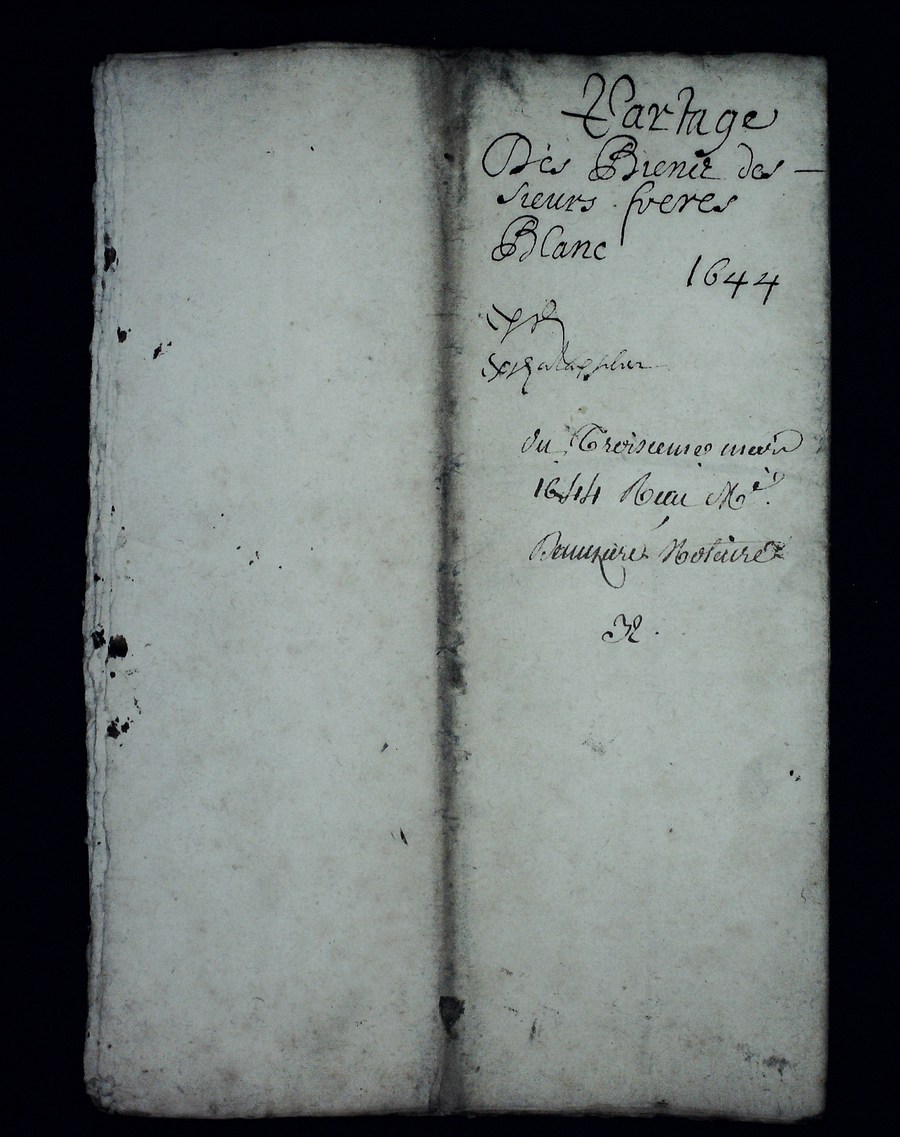 Partage
Des Biens des —
sieurs freres
Blanc
1644
du Troisieme mars
1644 Me
Notaire
32.